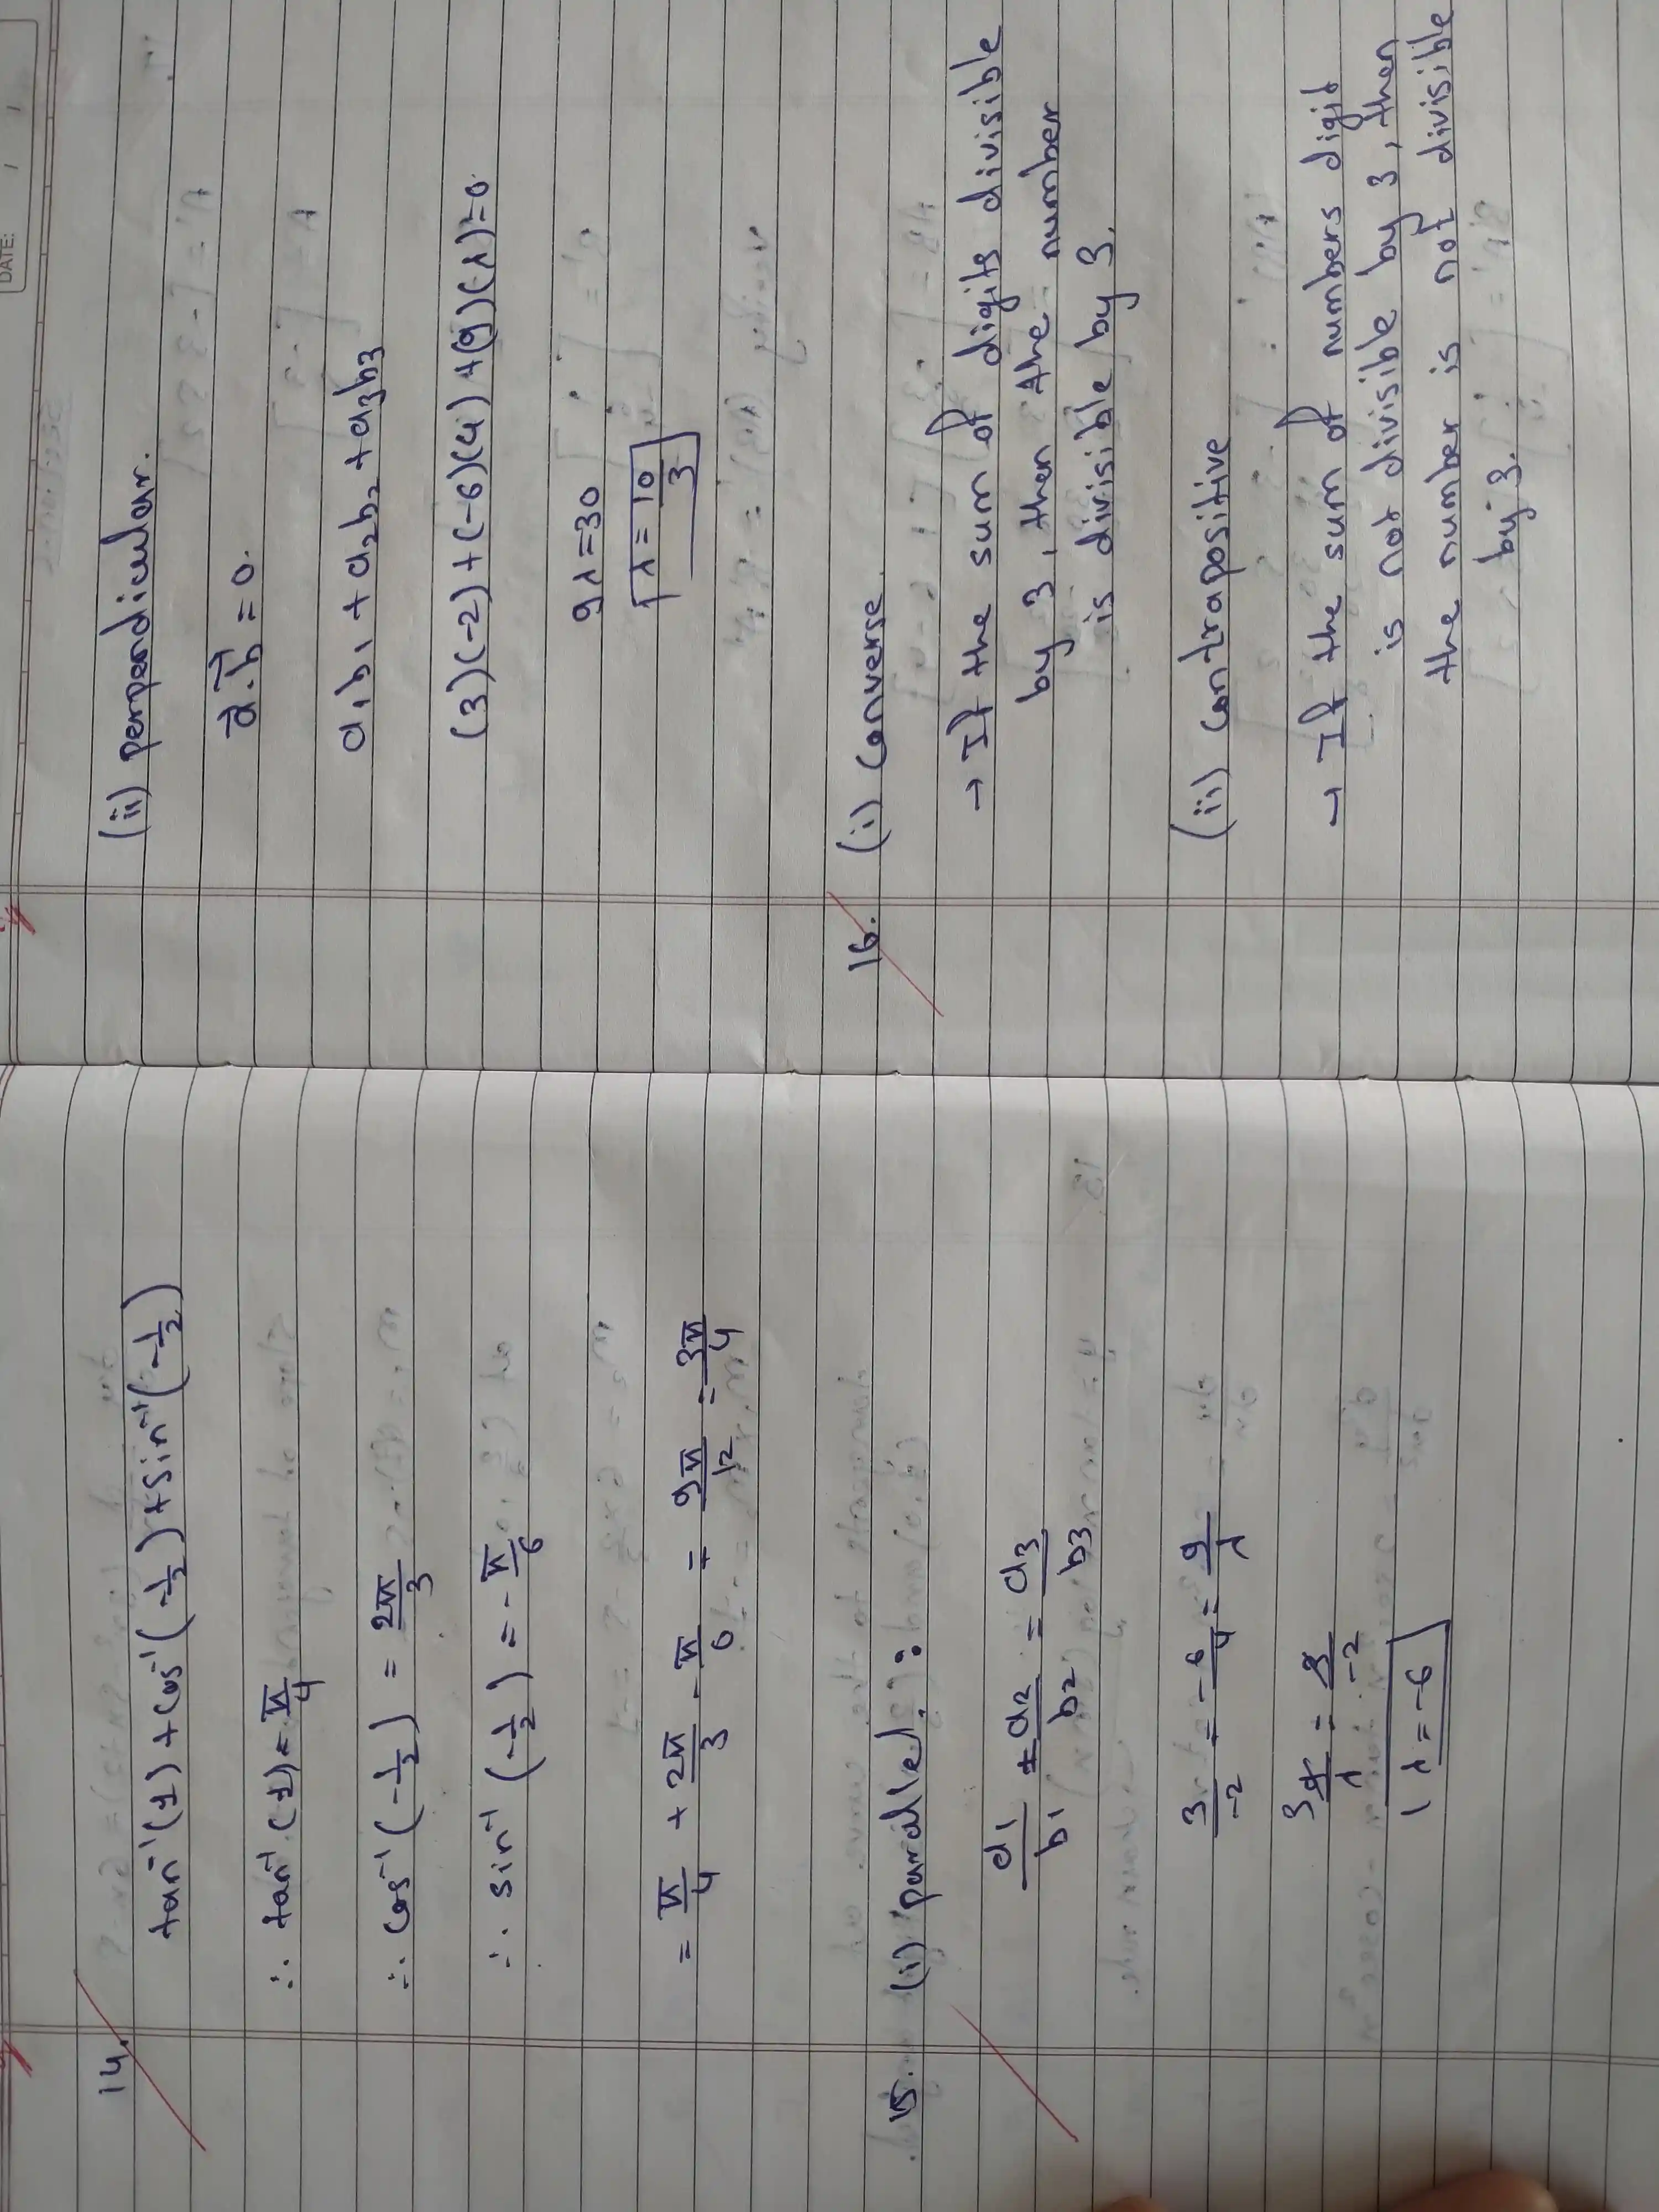 14. tan⁻¹(1) + cos⁻¹(-1/2) + sin⁻¹(-1/2)
∴ tan⁻¹(1) = π/4
∴ cos⁻¹(-1/2) = 2π/3
∴ sin⁻¹(-1/2) = -π/6
= π/4 + 2π/3 - π/6 = 9π/12 = 3π/4
15. (i) parallel:
a₁/b₁ = a₂/b₂ = a₃/b₃
3/-2 = -6/4 = 9/λ
λ = -6
DATE: / /
(ii) perpendicular.
a⃗.b⃗ = 0.
a₁b₁ + a₂b₂ + a₃b₃
(3)(-2) + (-6)(4) + (9)(λ) = 0.
9λ = 30
λ = 10/3
16. (i) Converse.
→ If the sum of digits divisible
by 3, then the number
is divisible by 3.
(ii) contrapositive
→ If the sum of numbers digit
is not divisible by 3, then
the number is not divisible
by 3.